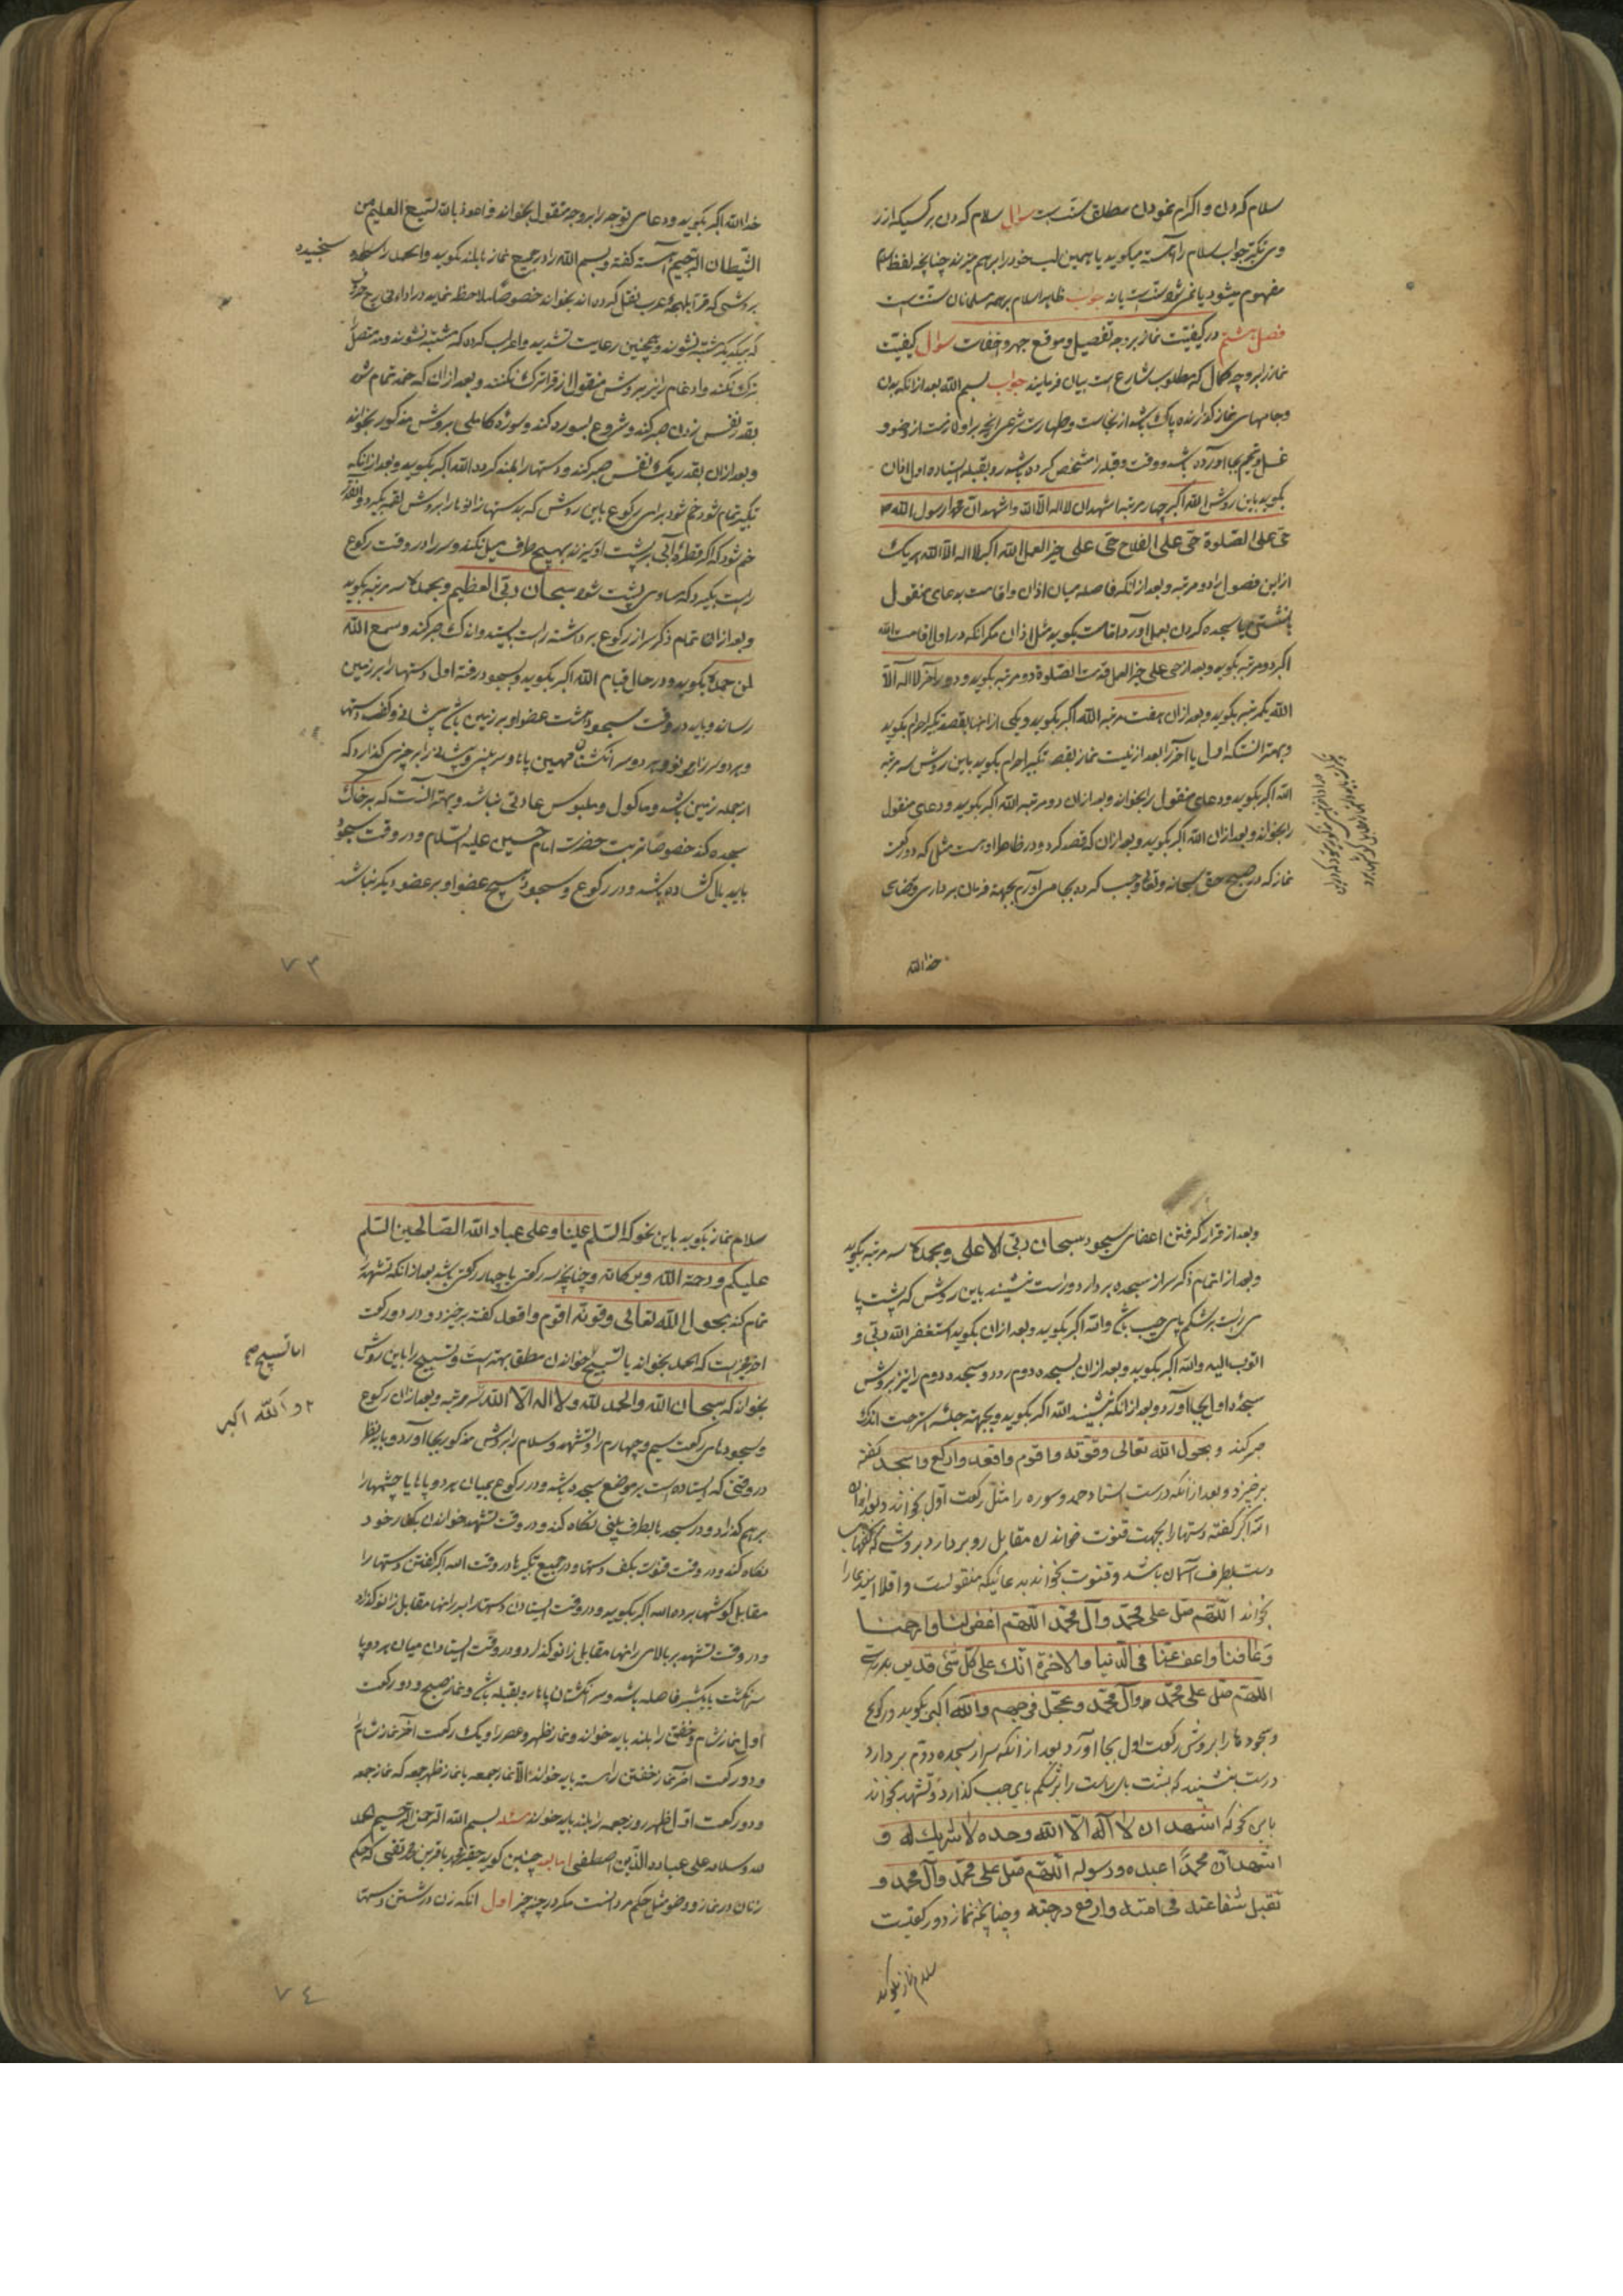 سلام کردن و اکرام نمودن مطلق سنّت است سؤال سلام کردن بر کسیکه از
وی نیکتر جواب سلام را آهسته میگوید یا همین لب خود را بر هم میزند چنانچه لفظ سلام
مفهوم میشود یا نمی شود سنت است یا نه جواب ظاهرا سلام بر همه مسلمانان سنت است
فصل هشتم در کیفیّت نماز بر وجه تفصیل و موقع جهر و اخفات سؤال کیفیّت
نماز را بر وجه کمال که مطلوب شارع است بیان فرمایند جواب بسم الله بعد از آنکه بدن
و جامهای نماز گذارنده پاک باشد از نجاست و طهارت شرعی آنچه بر او لازمست از وضو و
غسل و تیمم بجا آورده باشد و وقت و قبله را مشخص کرده باشد رو بقبله ایستاده اول اذان
بگوید باین روش الله اکبر چهار مرتبه اشهد ان لا اله الّا الله و اشهد انّ محمّدا رسول الله
حیّ علی الصّلوة حیّ علی الفلاح حیّ علی خیر العمل الله اکبر لا اله الّا الله هر یک
از این فصول را دو مرتبه و بعد از آنکه فاصله میان اذان و اقامت بدعای منقول
یا نشستن یا سجده کردن بعمل آورد اقامت بگوید مثل اذان مگر آنکه در اول اقامت الله
اکبر دو مرتبه بگوید و بعد از حی علی خیر العمل قد قامت الصّلوة دو مرتبه بگوید و در آخر لا اله الّا
الله یکمرتبه بگوید و بعد از آن هفت مرتبه الله اکبر بگوید و یکی از آنها بقصد تکبیر احرام بگوید
و بهتر آنستکه اول یا آخر را بعد از نیّت نماز بقصد تکبیر احرام بگوید باین روش سه مرتبه
الله اکبر بگوید و دعای منقول را بخواند و بعد از آن دو مرتبه الله اکبر بگوید و دعای منقول
را بخواند و بعد از آن الله اکبر بگوید و بعد از آن که قصد کرد و در خاطر او هست مثل که دو رکعت
نماز که در صبح حق سبحانه و تعالی واجب کرده بجا می آورم بجهة فرمان برداری و رضای
خدا الله
خدا الله اکبر بگوید و دعای توجه را بر وجه منقول بخواند و اعوذ بالله السّمیع العلیم من
الشّیطان الرّجیم آهسته گفته و بسم الله را در جمیع نماز بابلند بگوید و الحمد را
سنجیده
بروشی که قرّا بلهجهٔ عرب نقل کرده اند بخواند خصوصًا ملاحظه نماید در ادا مخارج حروف
که بیکدیگر مشتبه نشوند و همچنین رعایت تشدید و اعراب کردن که مشتبه نشوند و مد متصل را
ترک نکند و ادغام را نیز بروش منقول از قرّا ترک نکنند و بعد از آن که حمد تمام شود
بقدر نفس زدن صبر کند و شروع بسوره کند و سورهٔ کاملی بروش مذکور بخواند
و بعد از آن بقدر یک نفس صبر کند و دستها را بلند کرده الله اکبر بگوید و بعد از آنکه
تکبیر تمام شود خم شود برای رکوع باین روش که بدستها زانوها را بروش لقمه بگیرد و آنقدر
خم شود که اگر قطرهٔ آبی بر پشت او ریزند بهیچ طرف میل نکند و سر را در وقت رکوع
راست بگیرد که مساوی پشت شود سبحان ربّی العظیم و بحمده سه مرتبه بگوید
و بعد از آن تمام ذکر سر از رکوع برداشته راست بایستد و اندک صبر کند و سمع الله
لمن حمده بگوید و در حال قیام الله اکبر بگوید و بسجود رفته اول دستها را بر زمین
رساند و باید در وقت سجود هشت عضو او بر زمین باشد پیشانی و کف دستها
و هر دو سر زانو و هر دو سر انگشتان مهین پاها و سر بینی و پیشانی را بر چیزی گذارد که
از جمله زمین باشد و ماکول و ملبوس عادتی نباشد و بهتر آنست که بر خاک
سجده کند خصوصًا تربت حضرت امام حسین علیه السّلام و در وقت سجود
باید بال گشاده باشد و در رکوع و سجود هیچ عضو او بر عضو دیگر نباشد
۷۳
و بعد از قرار گرفتن اعضای سجود سبحان ربّی الاعلی و بحمده سه مرتبه بگوید
و بعد از اتمام ذکر سر از سجده بردارد و راست نشیند باین روش که پشت پا
ی راست بر شکم پای چپ باشد و الله اکبر بگوید و بعد از آن بگوید استغفر الله ربّی و
اتوب الیه و الله اکبر بگوید و بعد از آن بسجده دوم رود و سجده دوم را نیز بروش
سجدهٔ اول بجا آورد و بعد از آنکه بنشیند الله اکبر بگوید و بجهة جلسهٔ استراحت اندک
صبر کند و بحول الله تعالی و قوّته و اقوم و اقعد و ارکع و اسجد گفته
برخیزد و بعد از آنکه درست ایستاد حمد و سوره را مثل رکعت اول بخواند و بعد از آن
الله اکبر گفته دستها را بجهت قنوت خواندن مقابل رو بردارد بروشی که کفهای
دست بطرف آسمان باشد و قنوت بخواند بدعائیکه منقولست و اقلا این دعا را
بخواند اللّهم صلّ علی محمّد و آل محمّد اللّهم اغفر لنا و ارحمنا
و عافنا و اعف عنّا فی الدّنیا و الاخرة انّک علی کلّ شیٔ قدیر
اللّهم صلّ علی محمّد و آل محمّد و عجّل فرجهم و الله اکبر بگوید و رکوع
و سجودها را بروش رکعت اول بجا آورد و بعد از آنکه سر از سجدهٔ دوّم بردارد
درست بنشیند که پشت پای راست را بر شکم پای چپ گذارد و تشهد بخواند
باین نحو که اشهد ان لا اله الّا الله وحده لا شریک له و
اشهد انّ محمّدًا عبده و رسوله اللّهم صلّ علی محمّد و آل محمد و
تقبل شفاعته فی امته و ارفع درجته و چنانچه نماز دو رکعتیست
سلام نماز بگوید
سلام نماز بگوید باین نحو که السّلم علینا و علی عباد الله الصّالحین السّلم
علیکم و رحمة الله و برکاته و چنانچه سه رکعتی یا چهار رکعتی باشد بعد از آنکه تشهد را
تمام کند بحول الله تعالی و قوّته اقوم و اقعد گفته برخیزد و در دو رکعت
آخر مخیّر است که الحمد بخواند یا تسبیح خواندن مطلقا بهتر است و تسبیح را باین روش
اما تسبیح
بخواند که سبحان الله و الحمد لله و لا اله الّا الله سه مرتبه و بعد از آن رکوع
و الله اکبر
و سجودهای رکعت سیم و چهارم را و تشهد و سلام را بروش مذکور بجا آورد و باید نظر
در وقتی که ایستاده است بر موضع سجده باشد و در رکوع بمیان هر دو پا یا چشمها را
بر هم گذارد و در سجده بطرف بینی نگاه کند و در وقت تشهد خواندن بکنار خود
نگاه کند و در وقت قنوت بکف دستها و در جمیع تکبیرها در وقت الله اکبر گفتن دستها را
مقابل گوشها برده الله اکبر بگوید و در وقت ایستادن دستها را بر رانها مقابل زانو گذارد
و در وقت تشهد بر بالای رانها مقابل زانو گذارد و در وقت ایستادن میان هر دو پا
سه انگشت یا یکشبر فاصله باشد و سر انگشتان پاها رو بقبله باشد و نماز صبح و دو رکعت
اول نماز شام و خفتن را بلند باید خواند و نماز ظهر و عصر را و یک رکعت آخر نماز شام
و دو رکعت آخر نماز خفتن را آهسته باید خواند الّا نماز جمعه یا نماز ظهر جمعه که نماز جمعه
و دو رکعت اول ظهر روز جمعه را بلند باید خواند مسئله بسم الله الرّحمن الرّحیم الحمد
لله و سلام علی عباده الّذین اصطفی اما بعد چنین گوید حقیر محمد باقر بن محمد تقی که حکم
زنان در نماز و وضو مثل حکم مردانست مگر در چند چیز اول آنکه زن در شستن دستها
۷۴